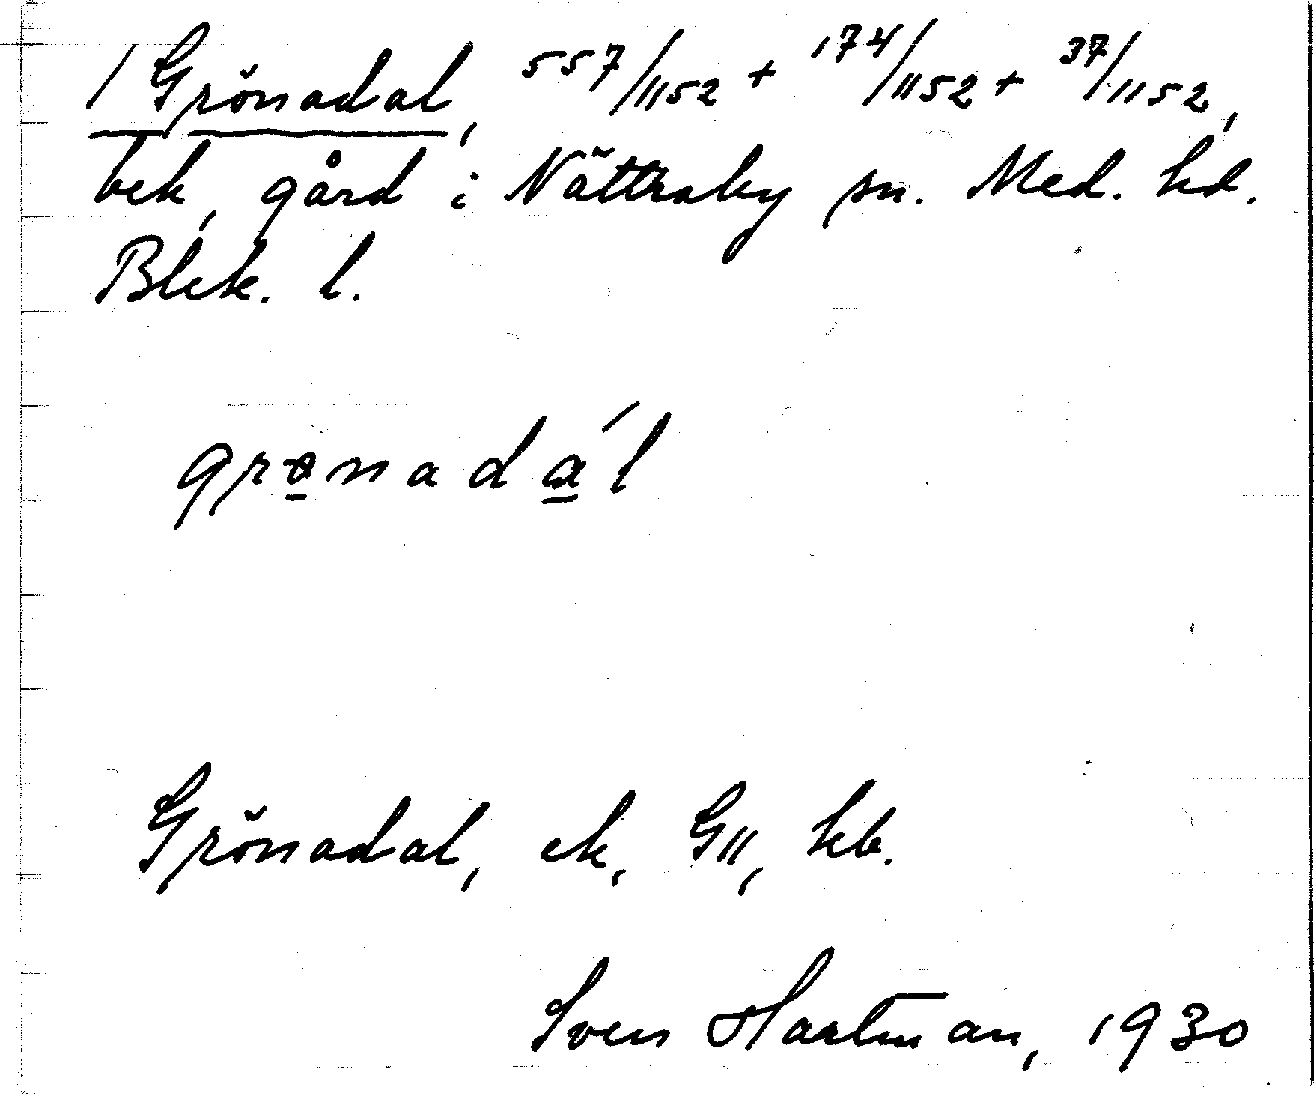 1 Grönadal, 557/1152 + 174/1152 + 37/1152,
bek, gård i Nättraby sn. Med. hd.
Blek. l.
grønadál
Grönadal, ek, G11, kb.
Sven Hartman, 1930